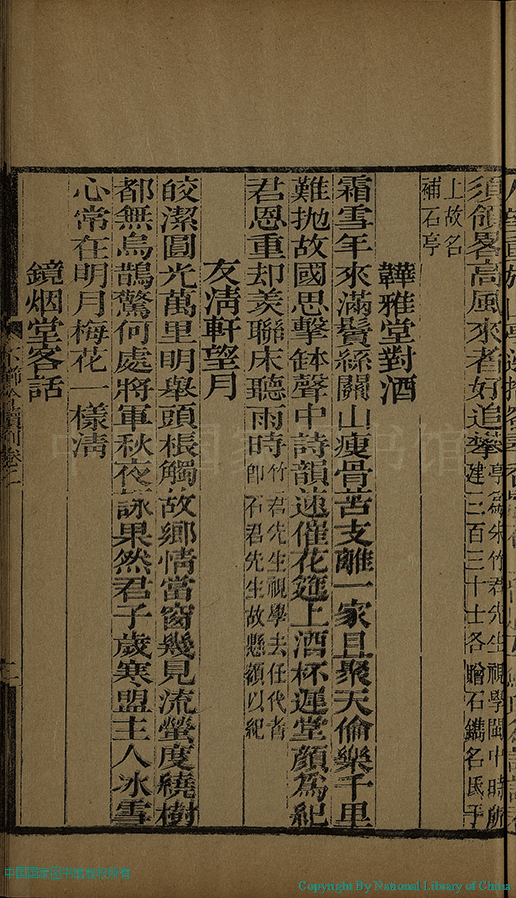 須領畧高風來者好追攀亭為朱竹君先生視學閩中時所
建二百三十士各贈石鐫名氏于
上故名
補石亭
韡雅堂對酒
霜雪年來滿鬢絲關山瘦骨苦支離一家且聚天倫樂千里
難拋故國思擊缽聲中詩韻速催花筵上酒杯遲堂顏為紀
君恩重却羨聯床聽雨時竹君先生視學去任代者
即石君先生故懸額以紀
友清軒望月
皎潔圓光萬里明舉頭棖觸故鄉情當窗幾見流螢度繞樹
都無烏鵲驚何處將軍秋夜詠果然君子歲寒盟主人冰雪
心常在明月梅花一樣清
鏡烟堂客話
Copyright By National Library of China